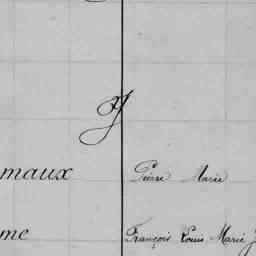 Y
maux Pierre Marie
me François Louis Marie J